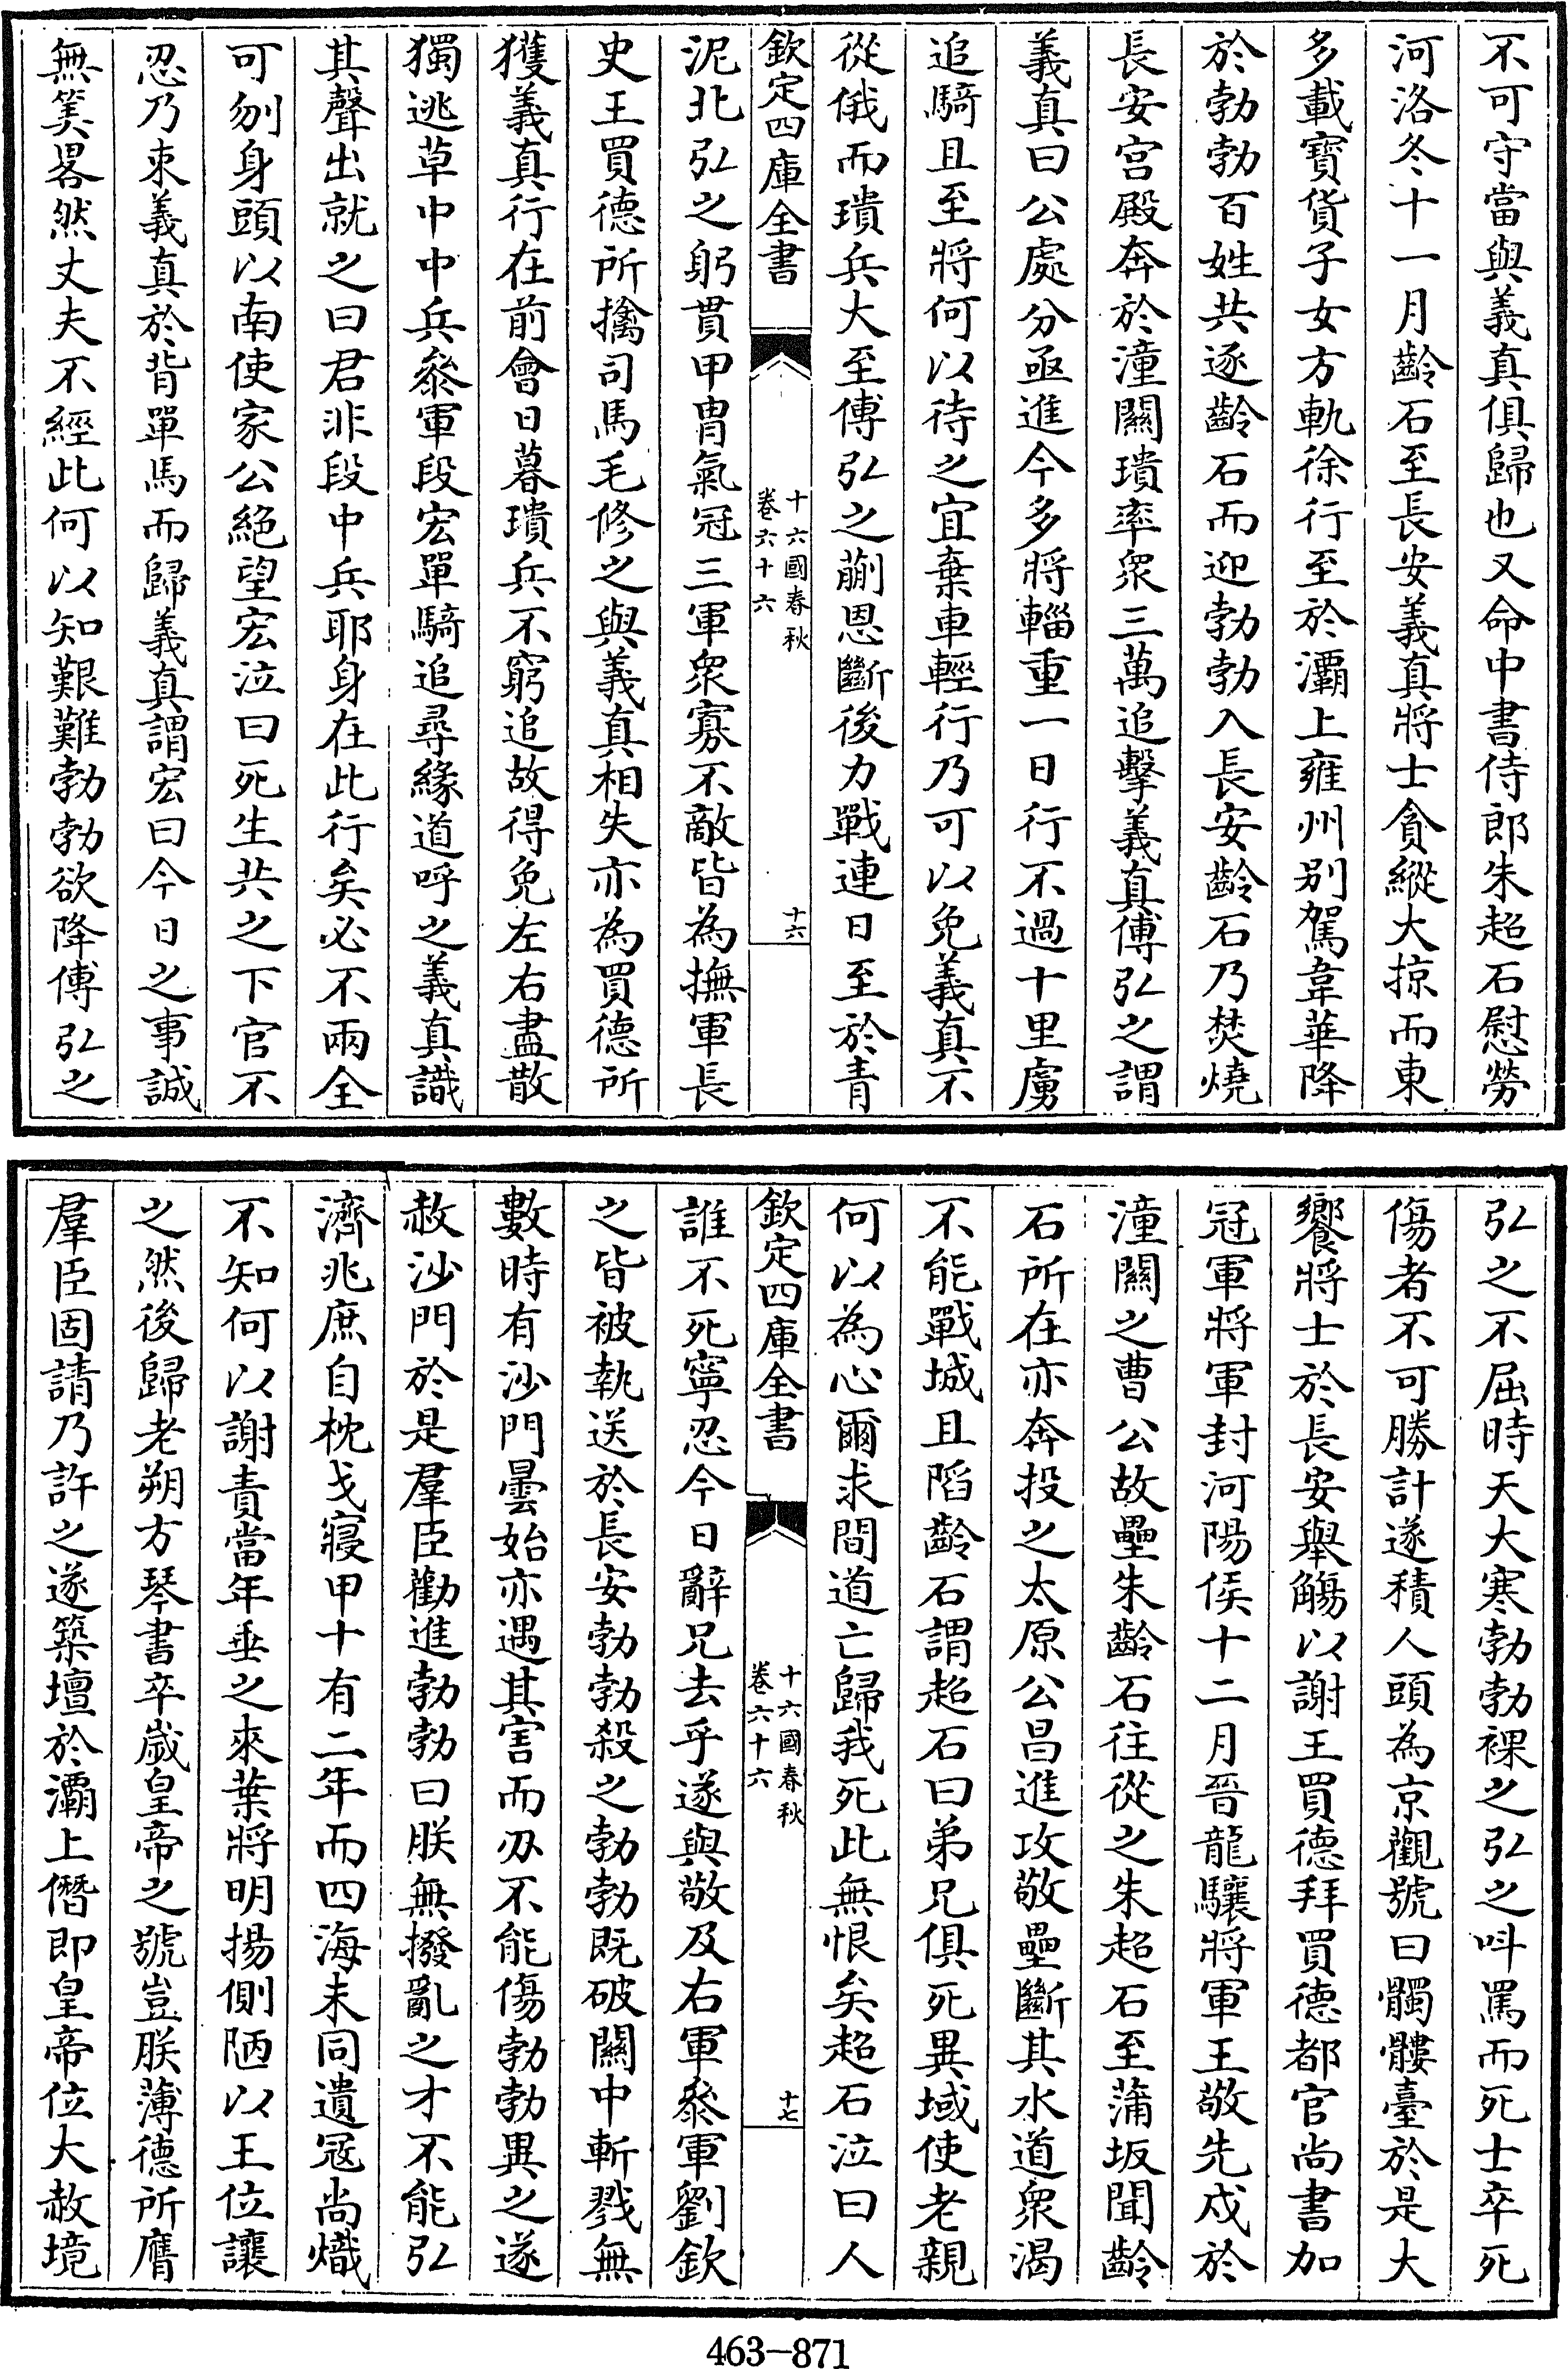 不可守當與義真俱歸也又命中書侍郎朱超石慰勞
河洛冬十一月齡石至長安義真將士貪縱大掠而東
多載寶貨子女方軌徐行至於灞上雍州别駕韋華降
於勃勃百姓共逐齡石而迎勃勃入長安齡石乃焚燒
長安宫殿奔於潼關璝率衆三萬追擊義真傅弘之謂
義真曰公處分亟進今多將輜重一日行不過十里虜
追騎且至將何以待之宜棄車輕行乃可以免義真不
從俄而璝兵大至傅弘之蒯恩斷後力戰連日至於青
欽定四庫全書
十六國春秋
卷六十六
十六
泥北弘之躬貫甲胄氣冠三軍衆寡不敵皆為撫軍長
史王買德所擒司馬毛修之與義真相失亦為買德所
獲義真行在前會日暮璝兵不窮追故得免左右盡散
獨逃草中中兵叅軍段宏單騎追尋緣道呼之義真識
其聲出就之曰君非段中兵耶身在此行矣必不兩全
可刎身頭以南使家公絶望宏泣曰死生共之下官不
忍乃束義真於背單馬而歸義真謂宏曰今日之事誠
無筭畧然丈夫不經此何以知艱難勃勃欲降傅弘之
弘之不屈時天大寒勃勃裸之弘之呌罵而死士卒死
傷者不可勝計遂積人頭為京觀號曰髑髏臺於是大
饗將士於長安舉觴以謝王買德拜買德都官尚書加
冠軍將軍封河陽侯十二月晉龍驤將軍王敬先戍於
潼關之曹公故壘朱齡石往從之朱超石至蒲坂聞齡
石所在亦奔投之太原公昌進攻敬壘斷其水道衆渴
不能戰城且䧟齡石謂超石曰弟兄俱死異域使老親
何以為心爾求間道亡歸我死此無恨矣超石泣曰人
欽定四庫全書
十六國春秋
卷六十六
十七
誰不死寧忍今日辭兄去乎遂與敬及右軍叅軍劉欽
之皆被執送於長安勃勃殺之勃勃既破關中斬戮無
數時有沙門曇始亦遇其害而刅不能傷勃勃異之遂
赦沙門於是羣臣勸進勃勃曰朕無撥亂之才不能弘
濟兆庶自枕戈寢甲十有二年而四海未同遺冦尚熾
不知何以謝責當年垂之來葉將明揚側陋以王位讓
之然後歸老朔方琴書卒歲皇帝之號豈朕薄德所膺
羣臣固請乃許之遂築壇於灞上僭即皇帝位大赦境
463—871